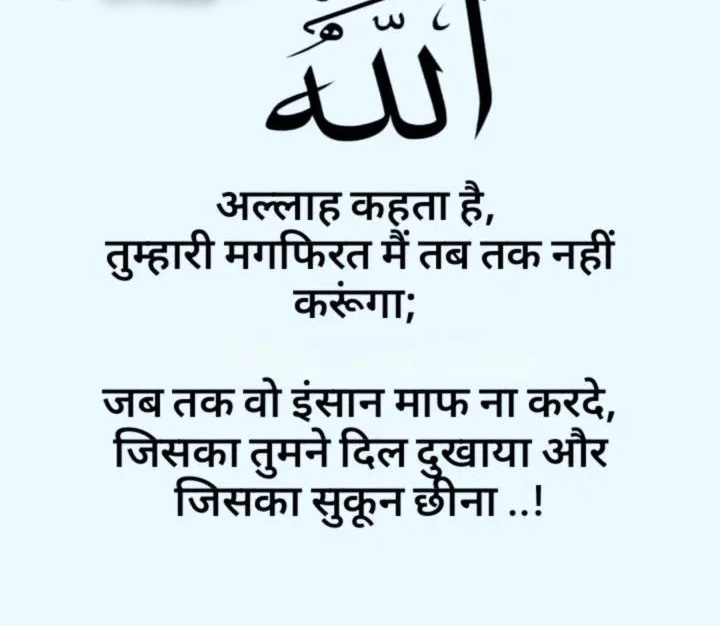 اللّٰهُ
अल्लाह कहता है,
तुम्हारी मगफिरत मैं तब तक नहीं
करूंगा;
जब तक वो इंसान माफ ना करदे,
जिसका तुमने दिल दुखाया और
जिसका सुकून छीना ..!